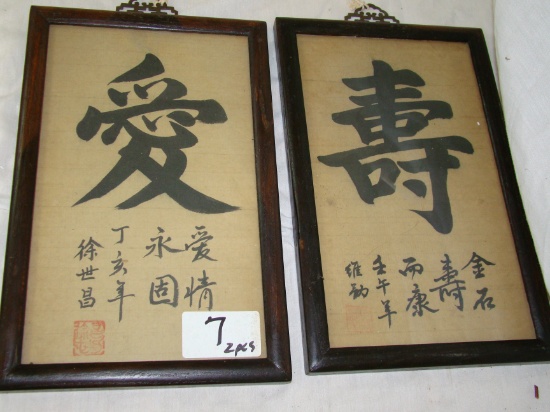 愛
愛情
永固
丁亥年
徐世昌
7
2pcs
壽
金石
壽
而康
壬午年